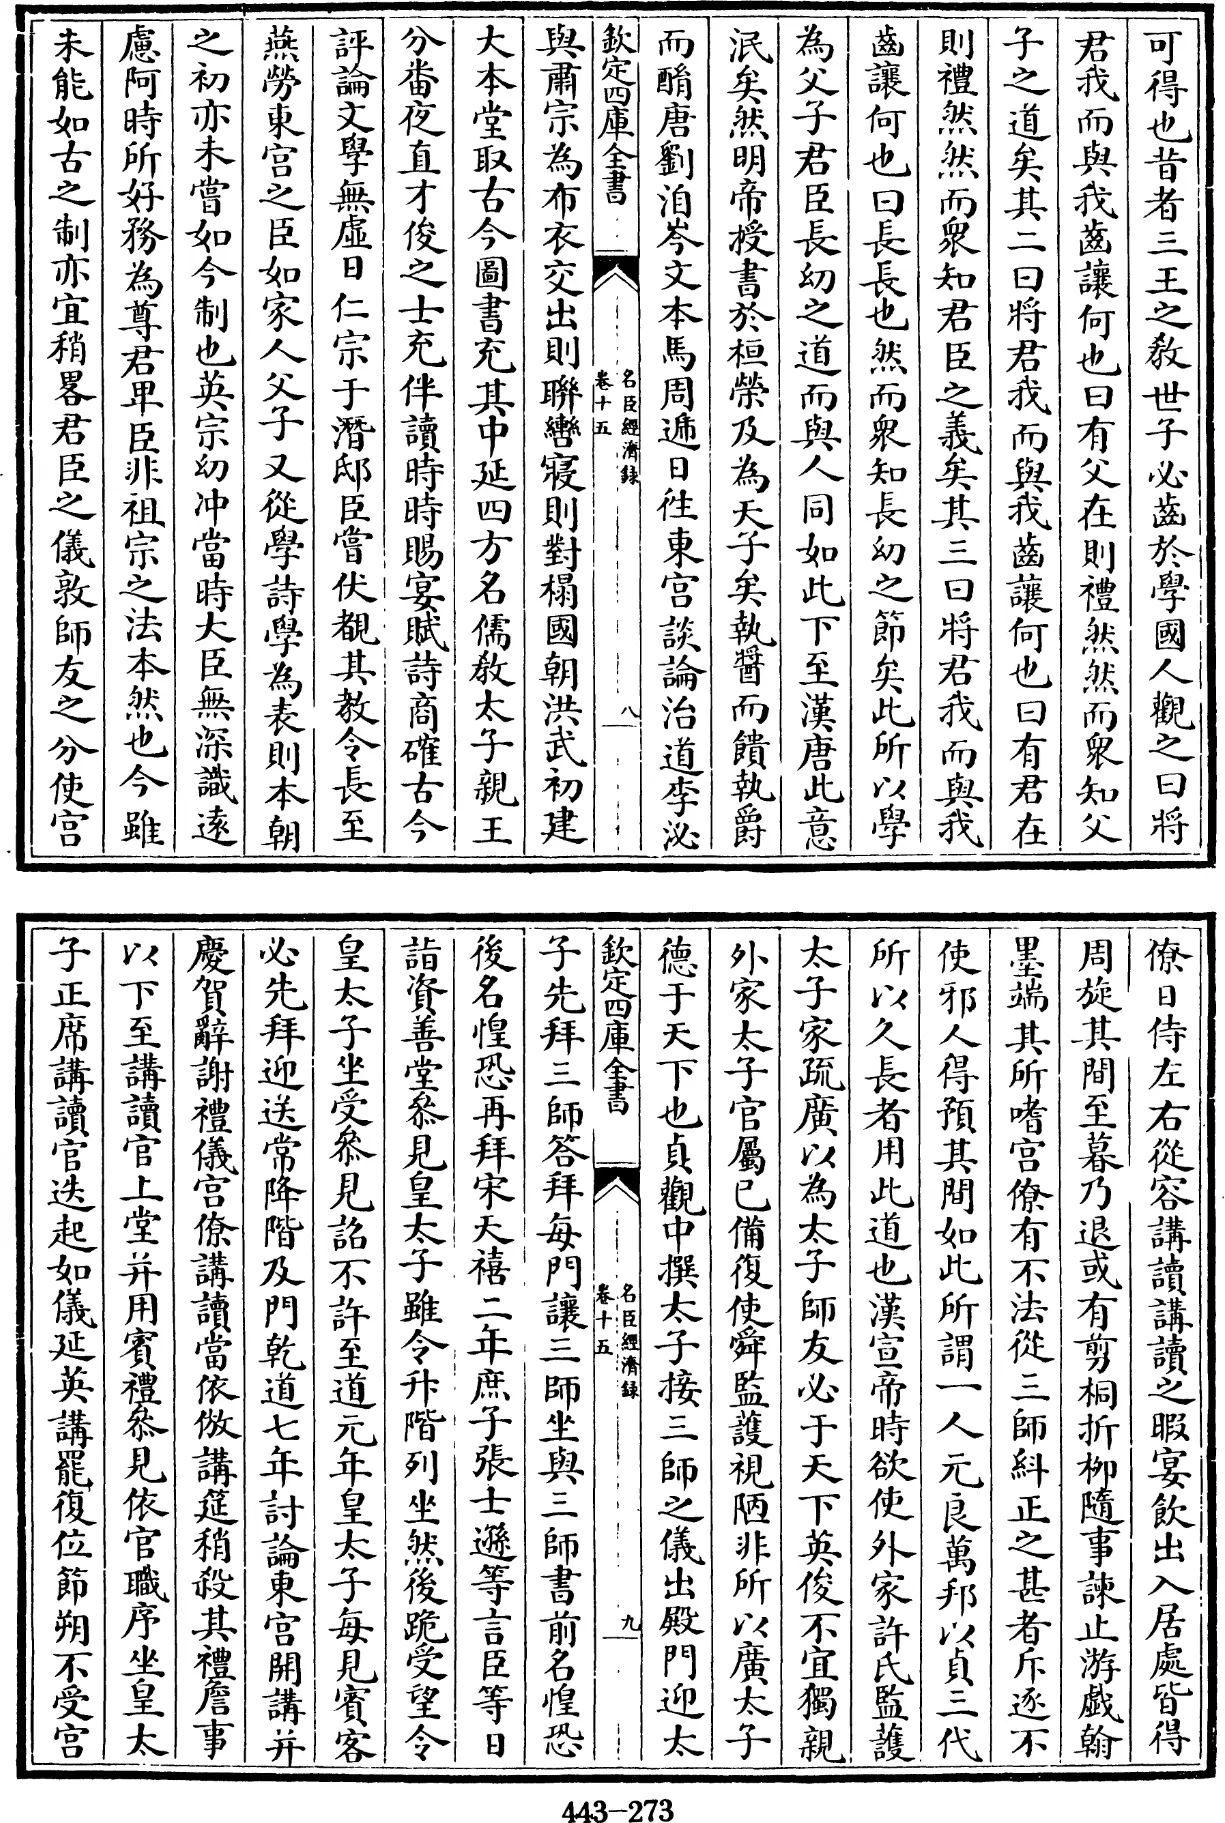 可得也昔者三王之教世子必齒於學國人觀之曰將
君我而與我齒讓何也曰有父在則禮然然而衆知父
子之道矣其二曰將君我而與我齒讓何也曰有君在
則禮然然而衆知君臣之義矣其三曰將君我而與我
齒讓何也曰長長也然而衆知長幼之節矣此所以學
為父子君臣長幼之道而與人同如此下至漢唐此意
泯矣然明帝授書於桓榮及為天子矣執醬而饋執爵
而酳唐劉洎岑文本馬周遞日徃東宫談論治道李泌
欽定四庫全書
名臣經濟録
卷十五
八
與肅宗為布衣交出則聯轡寢則對榻國朝洪武初建
大本堂取古今圖書充其中延四方名儒教太子親王
分畨夜直才俊之士充伴讀時時賜宴賦詩商確古今
評論文學無虛日仁宗于潛邸臣嘗伏覩其教令長至
燕勞東宫之臣如家人父子又從學詩學為表則本朝
之初亦未嘗如今制也英宗幼冲當時大臣無深識遠
慮阿時所好務為尊君卑臣非祖宗之法本然也今雖
未能如古之制亦宜稍畧君臣之儀敦師友之分使宫
僚日侍左右從容講讀講讀之暇宴飲出入居處皆得
周旋其間至暮乃退或有剪桐折柳隨事諫止游戲翰
墨端其所嗜宫僚有不法從三師糾正之甚者斥逐不
使邪人得預其間如此所謂一人元良萬邦以貞三代
所以久長者用此道也漢宣帝時欲使外家許氏監護
太子家疏廣以為太子師友必于天下英俊不宜獨親
外家太子官屬已備復使舜監護視陋非所以廣太子
德于天下也貞觀中撰太子接三師之儀出殿門迎太
欽定四庫全書
名臣經濟録
卷十五
九
子先拜三師答拜每門讓三師坐與三師書前名惶恐
後名惶恐再拜宋天禧二年庶子張士遜等言臣等日
詣資善堂叅見皇太子雖令升階列坐然後跪受望令
皇太子坐受叅見詔不許至道元年皇太子每見賓客
必先拜迎送常降階及門乾道七年討論東宫開講并
慶賀辭謝禮儀宫僚講讀當依倣講筵稍殺其禮詹事
以下至講讀官上堂并用賓禮叅見依官職序坐皇太
子正席講讀官迭起如儀延英講罷復位節朔不受宫
443-273